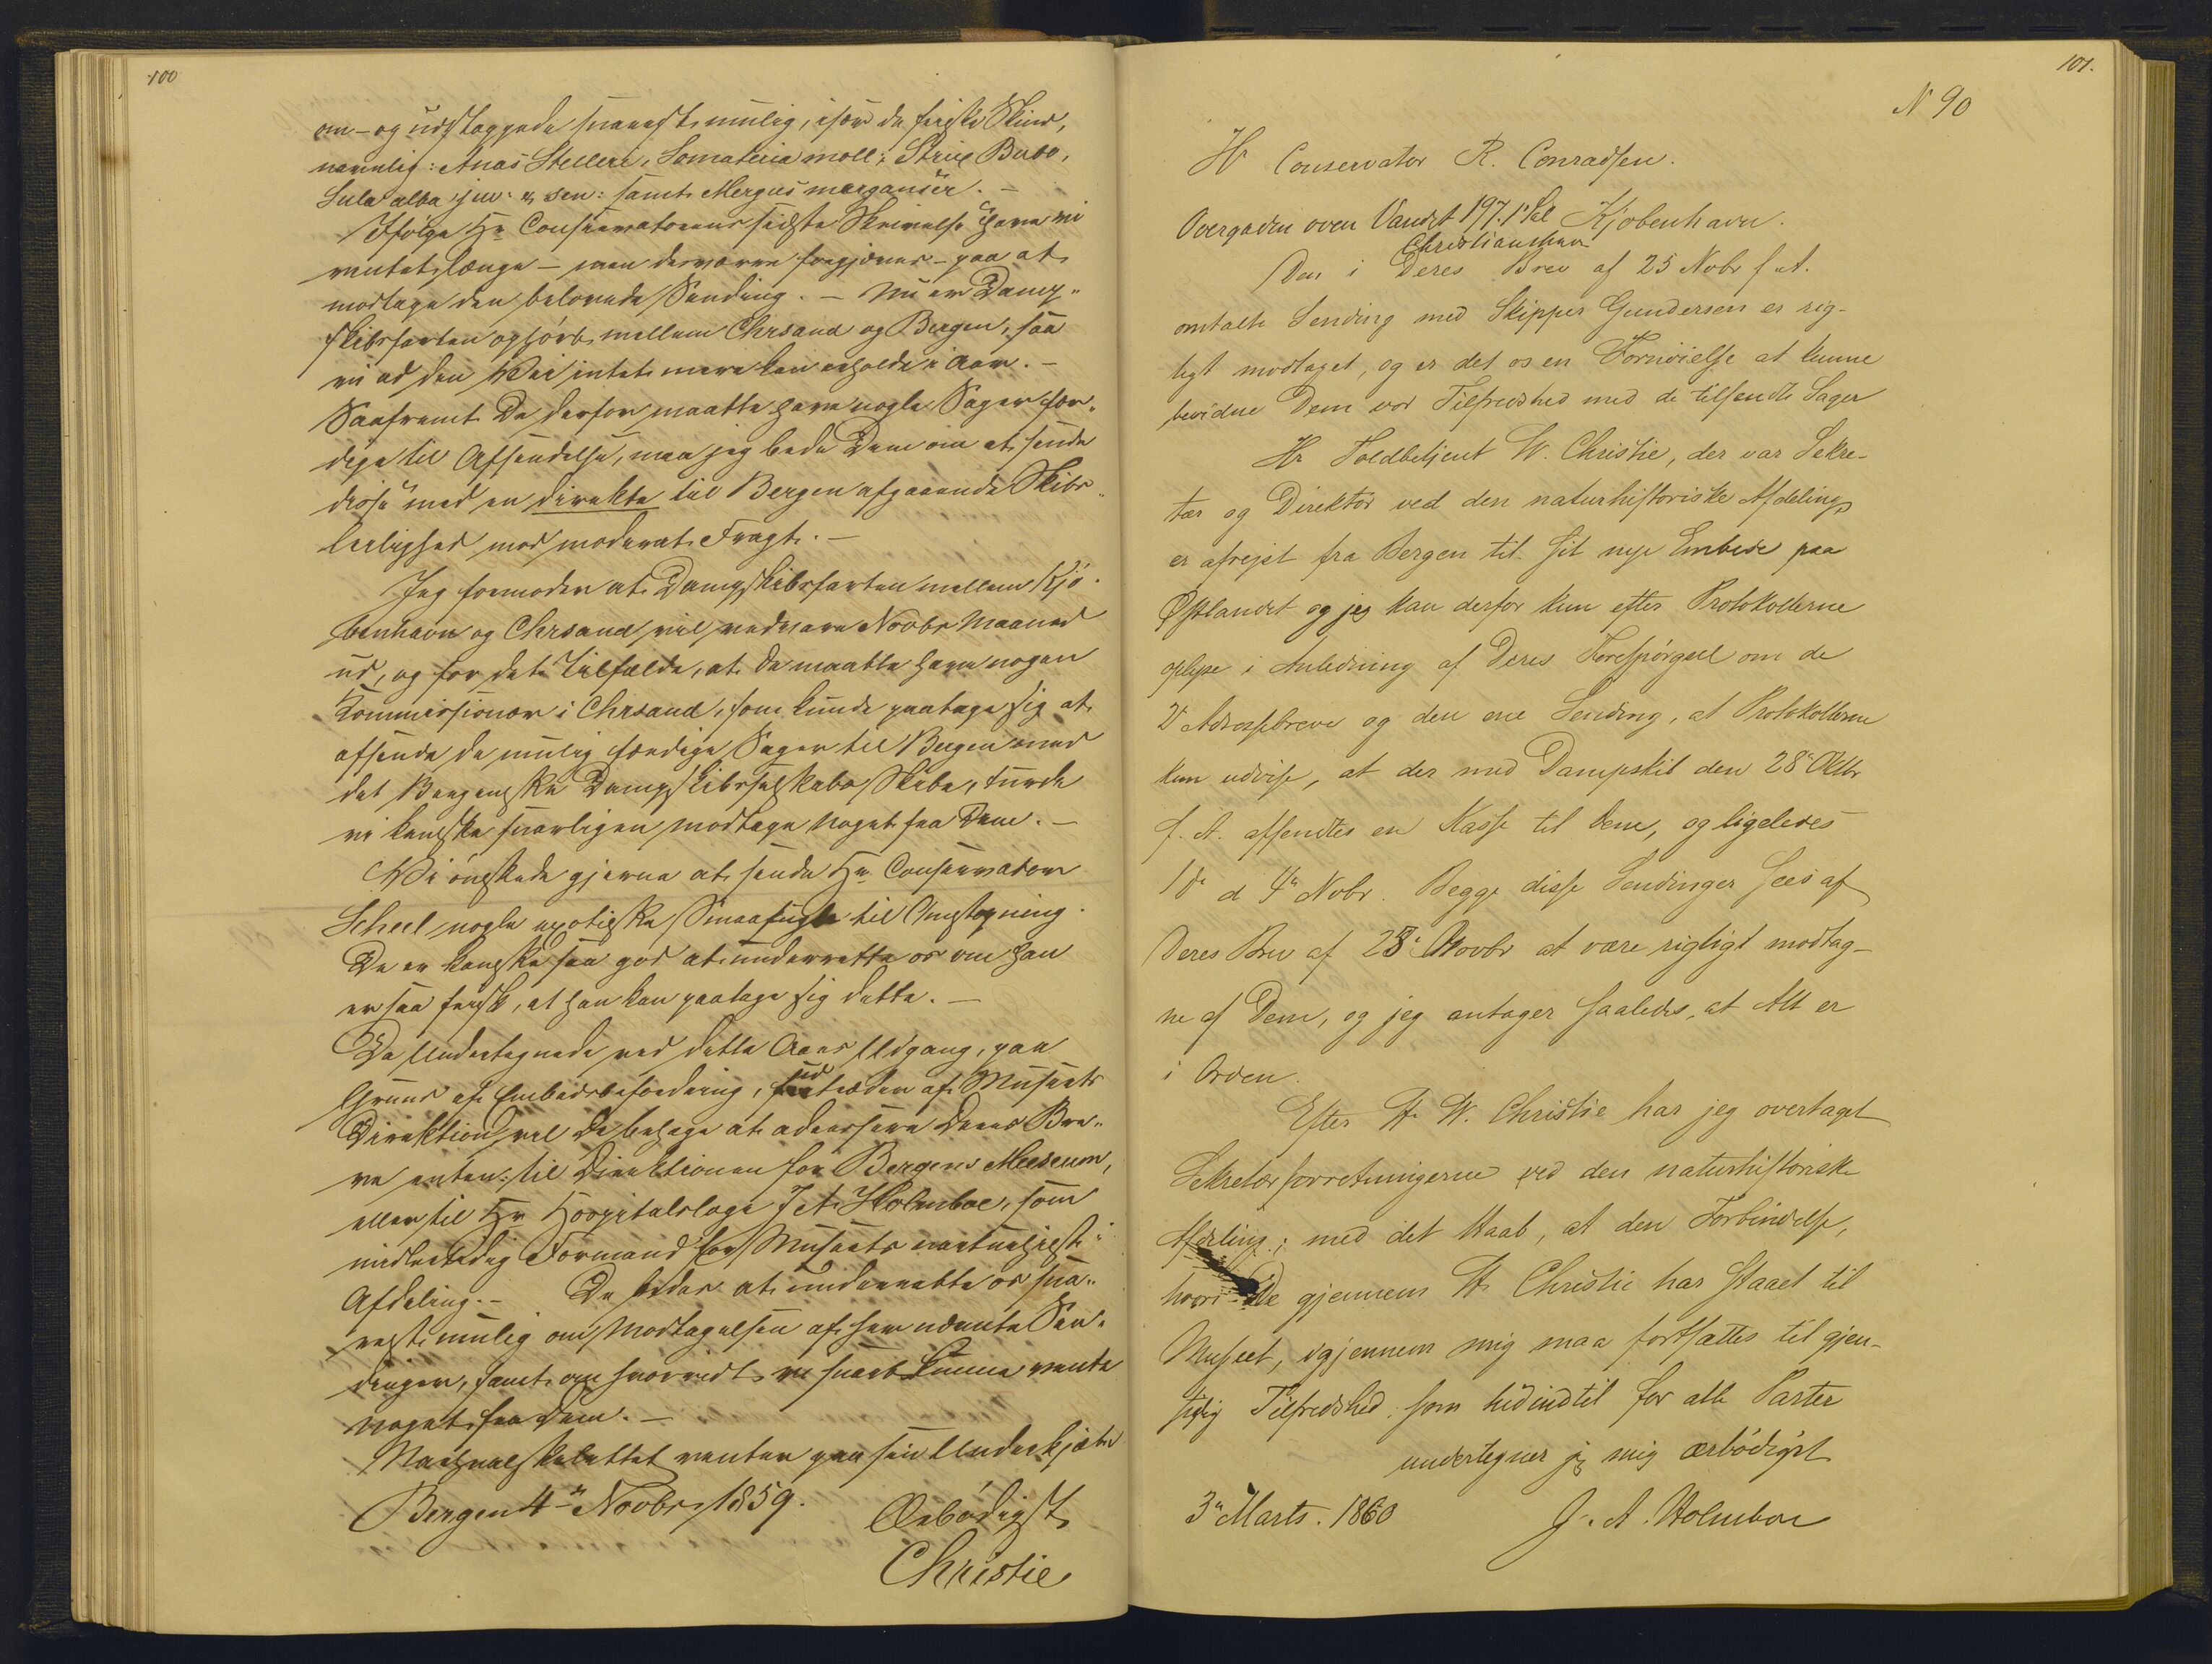 100
om- og udstoppede snarest mulig, især de friske Skind,
navnlig: Anas Stelleri, Somateria moll:, Strix Bubo,
Sula alba jun: & sen: samt Mergus merganser. –
Ifölge Hr Conservatorens sidste Skrivelse have vi
ventet længe – men desværre forgjæves – paa at
modtage den belovede Sending. – Nu er Damp-
skibsfarten ophört mellem Chrsand og Bergen, saa
vi ad den Vei intet mere kan erholde i Aar. –
Saafremt De derfor maatte have nogle Sager fær-
dige til Afsendelse, maa jeg bede Dem om at sende
disse med en direkte til Bergen afgaaende Skibs-
leilighed mod moderat Fragt. –
Jeg formoder at Dampskibsfarten mellem Kjö-
benhavn og Chrsand vil vedvare Novbr Maaned
ud, og for det Tilfælde, at De maatte have nogen
Kommissionær i Chrsand, som kunde paatage sig at
afsende de mulig færdige Sager til Bergen med
det Bergenske Dampskibsselskabs Skibe, turde
vi kanske snarligen modtage noget fra Dem. –
Vi önskede gjerne at sende Hr Conservator
Scheel nogle exotiske Smaafugle til Omstopning.
De er kanske saa god at underrette os om han
er saa frisk, at han kan paatage sig dette. –
Da Undertegnede ved dette Aars Udgang, paa
Grund af Embedsbefordring, udtræder af Musæets
Direktion, vil De behage at adressere Deres Bre-
ve enten til Direktionen for Bergens Museum,
eller til Hr Hospitalslæge J A Holmboe, som
midlertidig Formand for Musæets naturhist:
Afdeling. – De bedes at underrette os sna-
rest mulig om Modtagelsen af her nævnte Sen-
dinger, samt om hvorvidt vi snart kunne vente
noget fra Dem. –
Narhvalskelettet venter paa sin Underkjæve
Bergen 4de Novbr 1859.
Ærbödigst
Christie
101.
N 90
Hr Conservator R. Conradsen.
Overgaden oven Vandet 197. 1 Sal Kjøbenhavn.
Christianshavn
Den i Deres Brev af 25 Nobr f. A.
omtalte Sending med Skipper Gundersen er rig-
tigt modtaget, og er det os en Fornøielse at kunne
bevidne Dem vor Tilfredshed med de tilsendte Sager
Hr Toldbetjent W. Christie, der var Sekre-
tær og Direktør ved den naturhistoriske Afdeling,
er afrejst fra Bergen til sit nye Embede paa
Østlandet og jeg kan derfor kun efter Protokollerne
oplyse i Anledning af Deres Forespørgsel om de
2 Adressebreve og den ene Sending, at Protokollerne
kun udvise, at der med Dampskib den 28de Oktbr
f. A. afsendtes en Kasse til Dem, og ligeledes
1 do d 4de Nobr. Begge disse Sendinger sees af
Deres Brev af 28de Novbr at være rigtigt modtag-
ne af Dem, og jeg antager saaledes, at Alt er
i Orden.
Efter Hr W. Christie har jeg overtaget
Sekretærforretningerne ved den naturhistoriske
Afdeling; med det Haab, at den Forbindelse,
hvori De gjennem Hr Christie har staaet til
Museet, igjennem mig maa fortsættes til gjen-
sidig Tilfredshed, som hidindtil for alle Parter
undertegner jeg mig ærbødigst
3de Marts. 1860 J. A. Holmboe